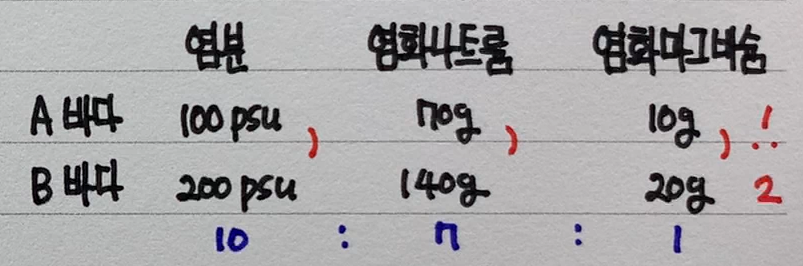 염분 염화나트륨 염화마그네슘
A 바다 100 psu ) 70g ) 10g ) 1
:
B 바다 200 psu 140g 20g 2
10 : 7 : 1